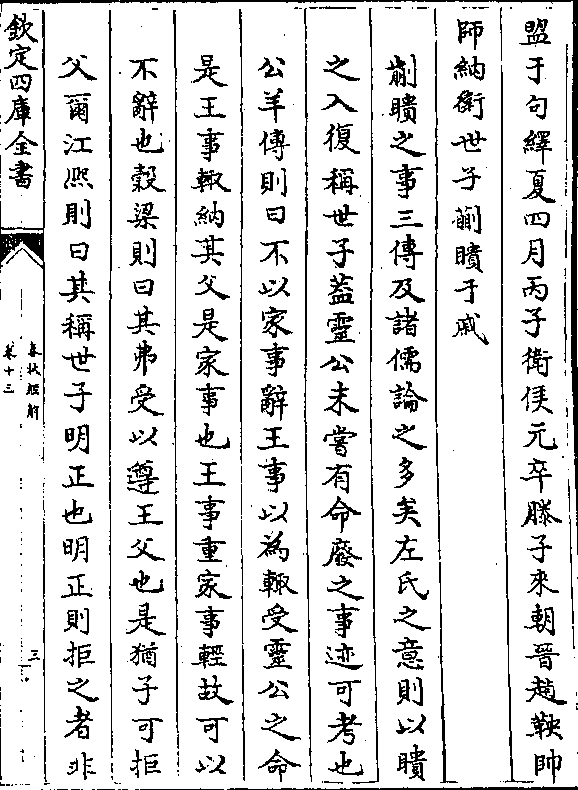 盟于句繹夏四月丙子衛侯元卒滕子來朝晉趙鞅帥
師納衛世子蒯聵于戚
蒯聵之事三傳及諸儒論之多矣左氏之意則以聵
之入復稱世子葢靈公未嘗有命廢之事迹可考也
公羊傳則曰不以家事辭王事以為輒受靈公之命
是王事輒納其父是家事也王事重家事輕故可以
不辭也穀梁則曰其弗受以尊王父也是猶子可拒
父爾江熈則曰其稱世子明正也明正則拒之者非
欽定四庫全書
春秋經解
卷十三
三